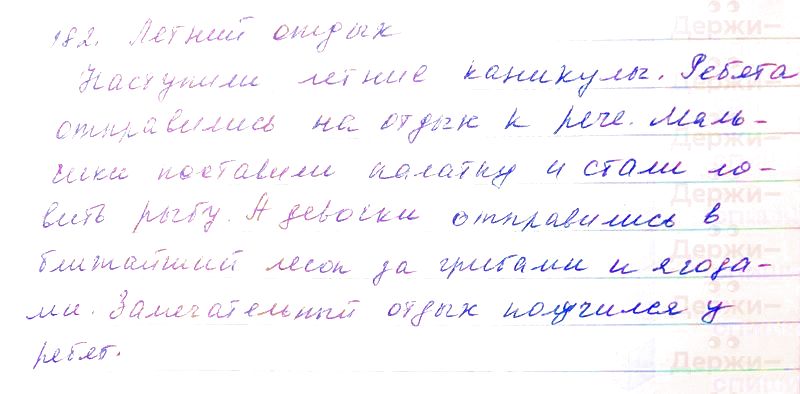 182. Летний отдых
Наступили летние каникулы. Ребята
отправились на отдых к рече. Маль-
чики поставили палатку и стали ло-
вить рыбу. А девочки отправились в
ближайший лесок за грибами и ягода-
ми. Замечательный отдых получился у
ребят.
Держи-
Держи-
Держи-
Держи-
спиши